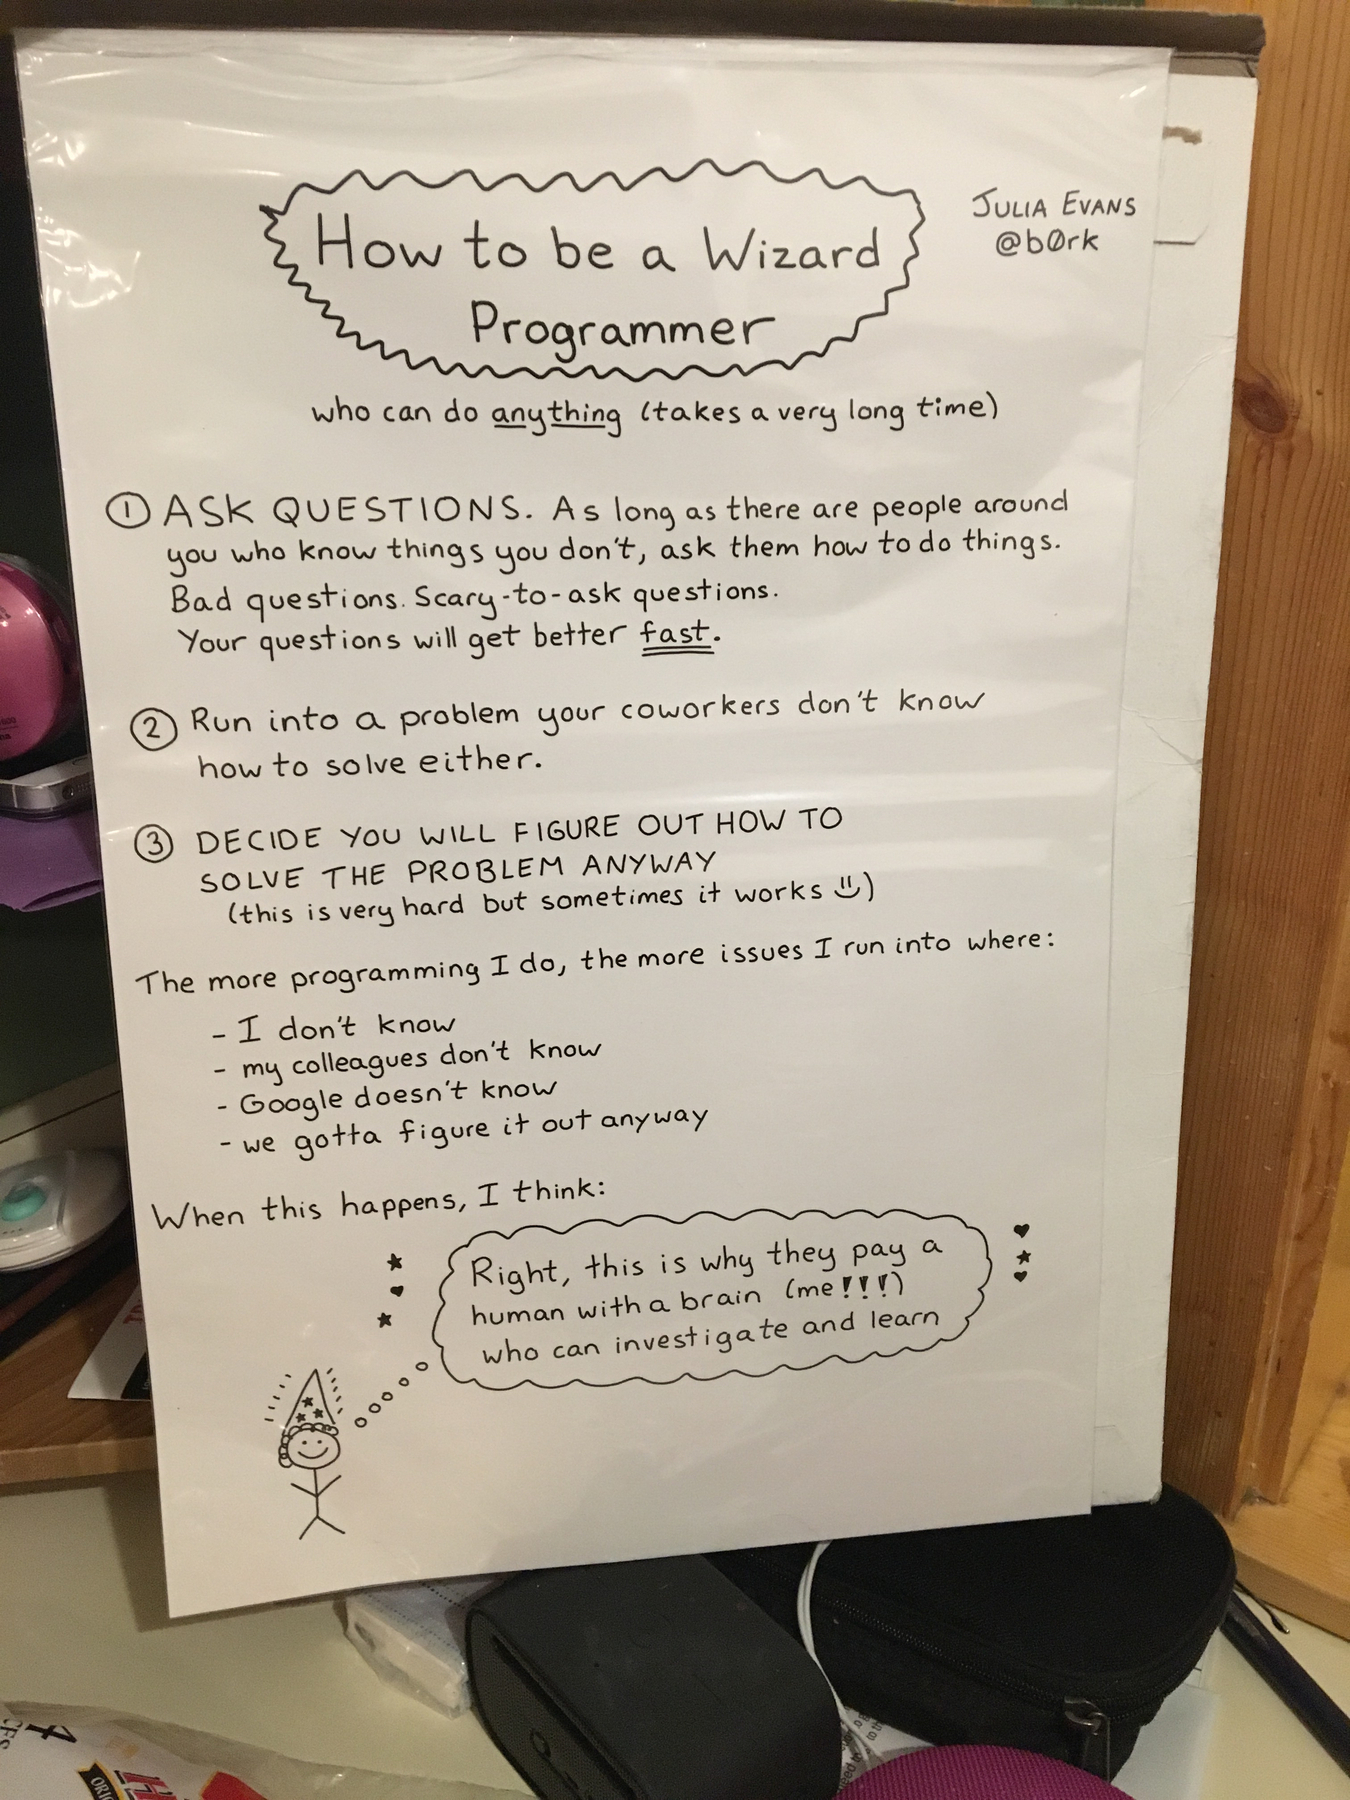 How to be a Wizard
Programmer
JULIA EVANS
@b0rk
who can do anything (takes a very long time)
① ASK QUESTIONS. As long as there are people around
you who know things you don't, ask them how to do things.
Bad questions. Scary-to-ask questions.
Your questions will get better fast.
② Run into a problem your coworkers don't know
how to solve either.
③ DECIDE YOU WILL FIGURE OUT HOW TO
SOLVE THE PROBLEM ANYWAY
(this is very hard but sometimes it works )
The more programming I do, the more issues I run into where:
- I don't know
- my colleagues don't know
- Google doesn't know
- we gotta figure it out anyway
When this happens, I think:
Right, this is why they pay a
human with a brain (me!!!)
who can investigate and learn